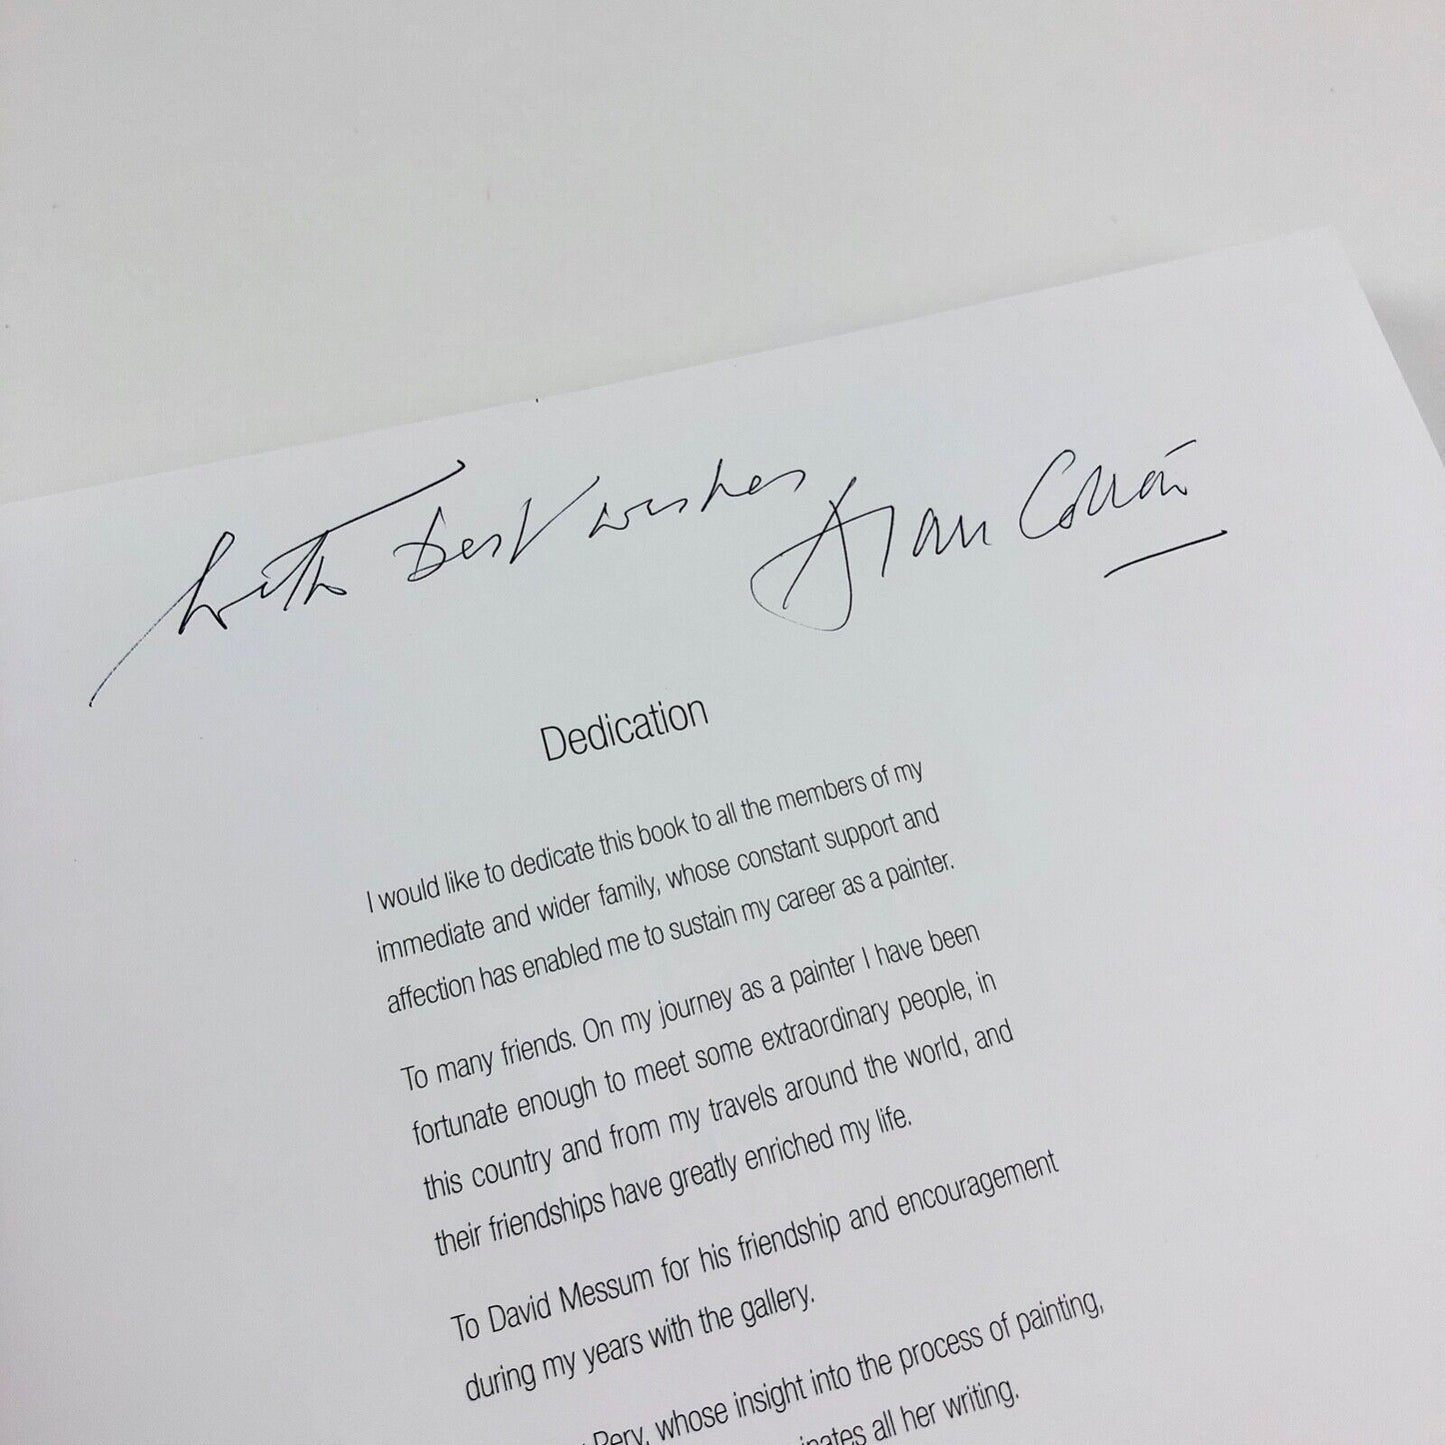 With Best wishes Alan Cotton
Dedication
I would like to dedicate this book to all the members of my
immediate and wider family, whose constant support and
affection has enabled me to sustain my career as a painter.
To many friends. On my journey as a painter I have been
fortunate enough to meet some extraordinary people, in
this country and from my travels around the world, and
their friendships have greatly enriched my life.
To David Messum for his friendship and encouragement
during my years with the gallery.
Pery, whose insight into the process of painting,
all her writing.